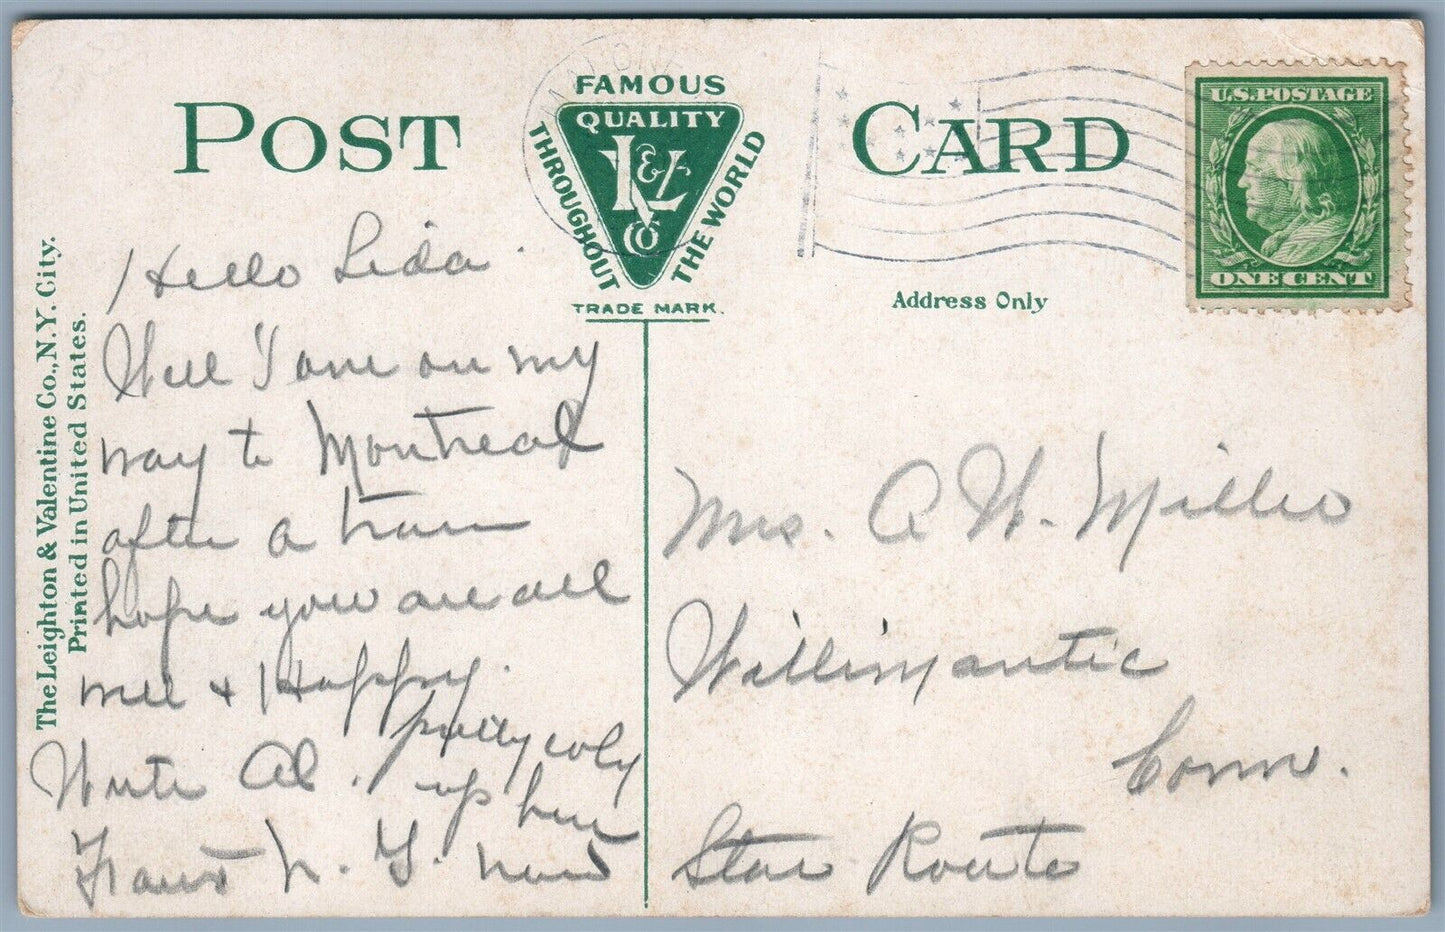 POST CARD
FAMOUS
QUALITY
THROUGHOUT
THE WORLD
L & V Co
TRADE MARK.
U.S. POSTAGE
ONE CENT
MALONE
Address Only
The Leighton & Valentine Co., N.Y. City.
Printed in United States.
Hello Lida.
Well I am on my
way to Montreal
after a train
hope you are all
well & Happy.
Write Al.
pretty coly
up here
N. Y. now
Mrs. A W. Miller
Willimantic
Conn.
Star Route